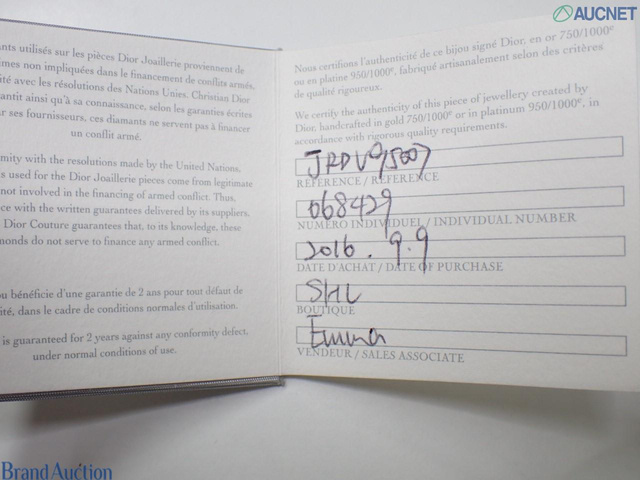 AUCNET
ants utilisés sur les pièces Dior Joaillerie proviennent de
imes non impliquées dans le financement de conflits armés,
ité avec les résolutions des Nations Unies. Christian Dior
antit ainsi qu'à sa connaissance, selon les garanties écrites
r ses fournisseurs, ces diamants ne servent pas à financer
un conflit armé.
mity with the resolutions made by the United Nations,
s used for the Dior Joaillerie pieces come from legitimate
not involved in the financing of armed conflict. Thus,
ce with the written guarantees delivered by its suppliers,
Dior Couture guarantees that, to its knowledge, these
monds do not serve to finance any armed conflict.
u bénéficie d'une garantie de 2 ans pour tout défaut de
ité, dans le cadre de conditions normales d'utilisation.
is guaranteed for 2 years against any conformity defect,
under normal conditions of use.
Nous certifions l'authenticité de ce bijou signé Dior, en or 750/1000e
ou en platine 950/1000e, fabriqué artisanalement selon des critères
de qualité rigoureux.
We certify the authenticity of this piece of jewellery created by
Dior, handcrafted in gold 750/1000e or in platinum 950/1000e, in
accordance with rigorous quality requirements.
JRDV95007
RÉFÉRENCE / REFERENCE
068429
NUMÉRO INDIVIDUEL / INDIVIDUAL NUMBER
2016. 9.9
DATE D'ACHAT / DATE OF PURCHASE
SHL
BOUTIQUE
Emma
VENDEUR / SALES ASSOCIATE
Brand Auction